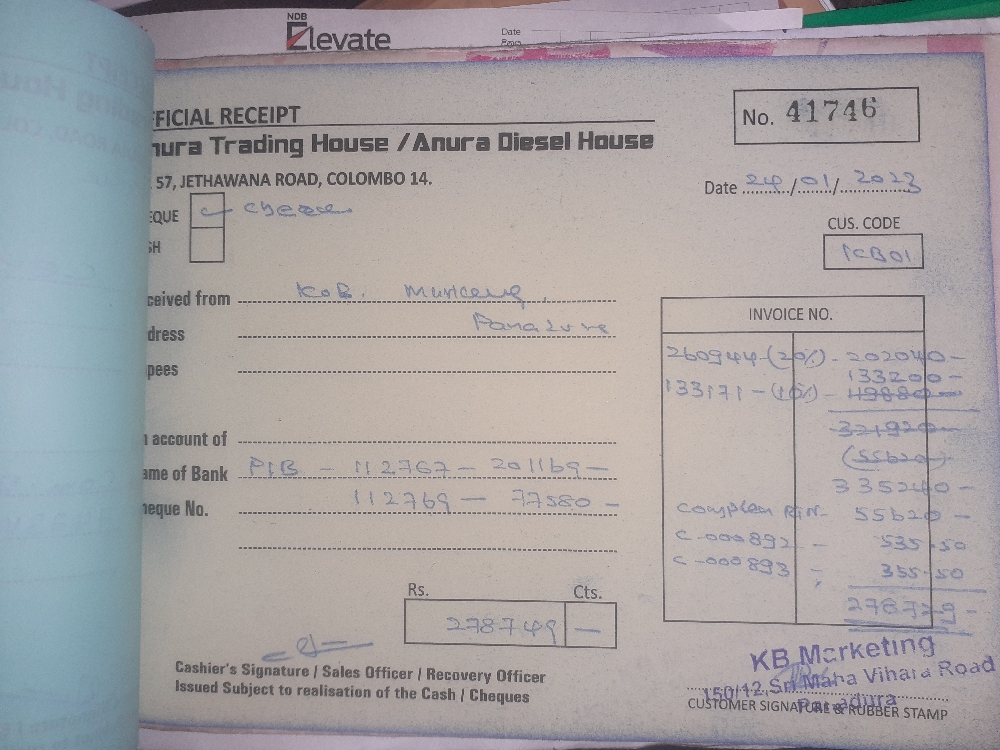 NDB
Elevate
Date
FICIAL RECEIPT
No. 41746
nura Trading House / Anura Diesel House
57, JETHAWANA ROAD, COLOMBO 14.
Date 24/01/2023
EQUE
SH
CUS. CODE
KB01
ceived from K.B.
dress Panadura
pees
account of
ame of Bank 112767 - 201169 -
heque No. 112769 - 77580 -
INVOICE NO.
260944-(20%) - 202040 -
133200 -
133171 - (10%) - 119880 -
321920 -
(55620)
335240 -
55620 -
C-000892 - 535.50
C-000893 - 355.50
278729 -
Rs. Cts.
278749 -
Cashier's Signature / Sales Officer / Recovery Officer
Issued Subject to realisation of the Cash / Cheques
KB Marketing
150/12, Sri Maha Vihara Road
Panadura
CUSTOMER SIGNATURE & RUBBER STAMP